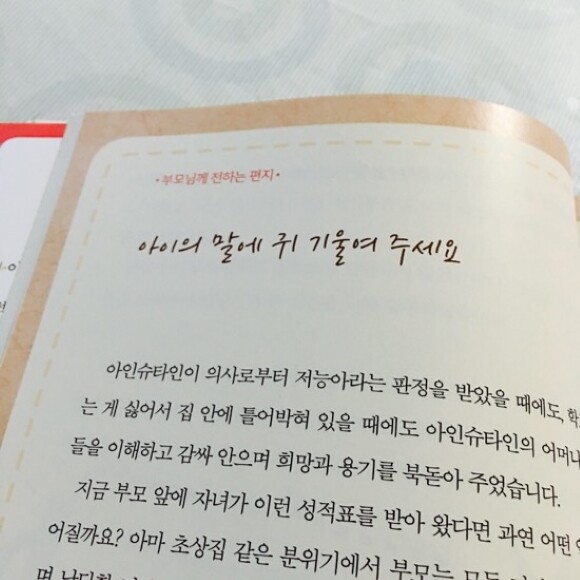 • 부모님께 전하는 편지 •
아이의 말에 귀 기울여 주세요
아인슈타인이 의사로부터 저능아라는 판정을 받았을 때에도, 학
는 게 싫어서 집 안에 틀어박혀 있을 때에도 아인슈타인의 어머니
들을 이해하고 감싸 안으며 희망과 용기를 북돋아 주었습니다.
지금 부모 앞에 자녀가 이런 성적표를 받아 왔다면 과연 어떤
어질까요? 아마 초상집 같은 분위기에서 부모는 모든
며